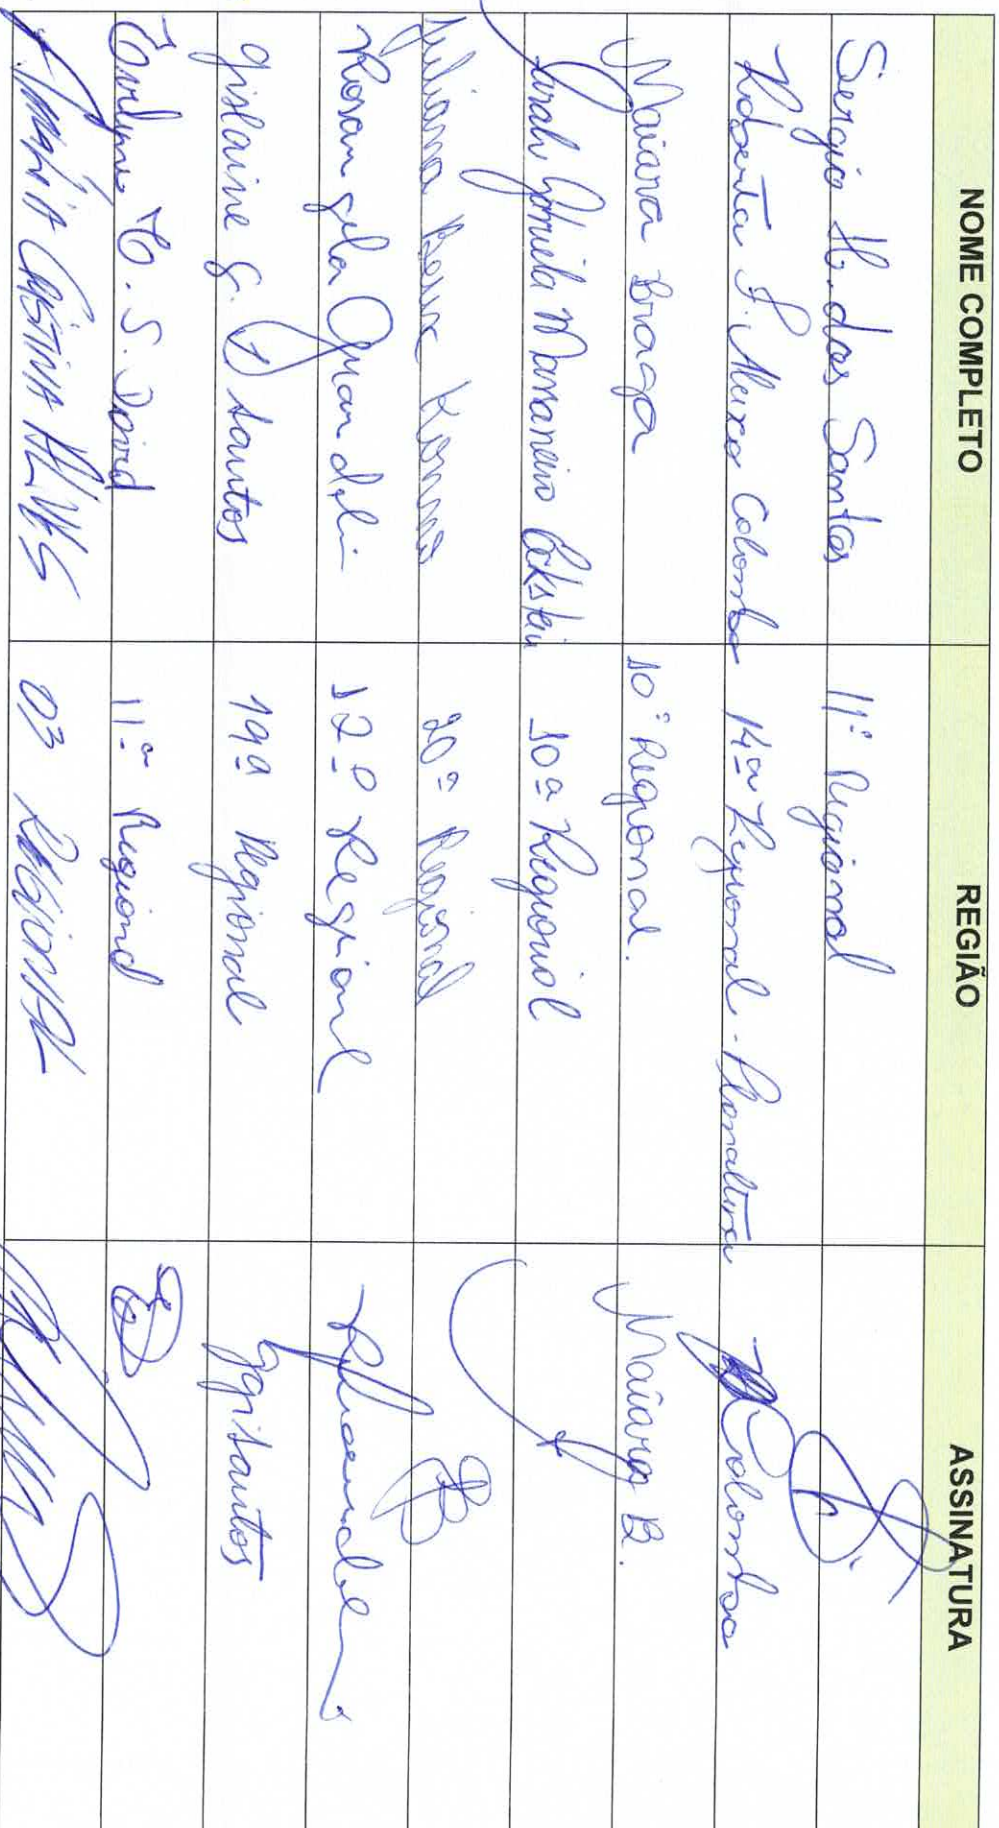 NOME COMPLETO REGIÃO ASSINATURA
Sergio H. dos Santos 11ª Regional
Roberta F. Aleixo Colombo 14ª Regional - Planaltina Colombo
Maiara Braga 10ª Regional. Maiara B.
Sarah Gabriela Massaneiro Eckstein 10ª Regional
Juliana 20ª Regional
Rosangela Guandalin 12ª Regional
Gislaine G. Santos 19ª Regional Ggisantos
E. S. David 11ª Regional
CRISTINA ALVES 03 REGIONAL